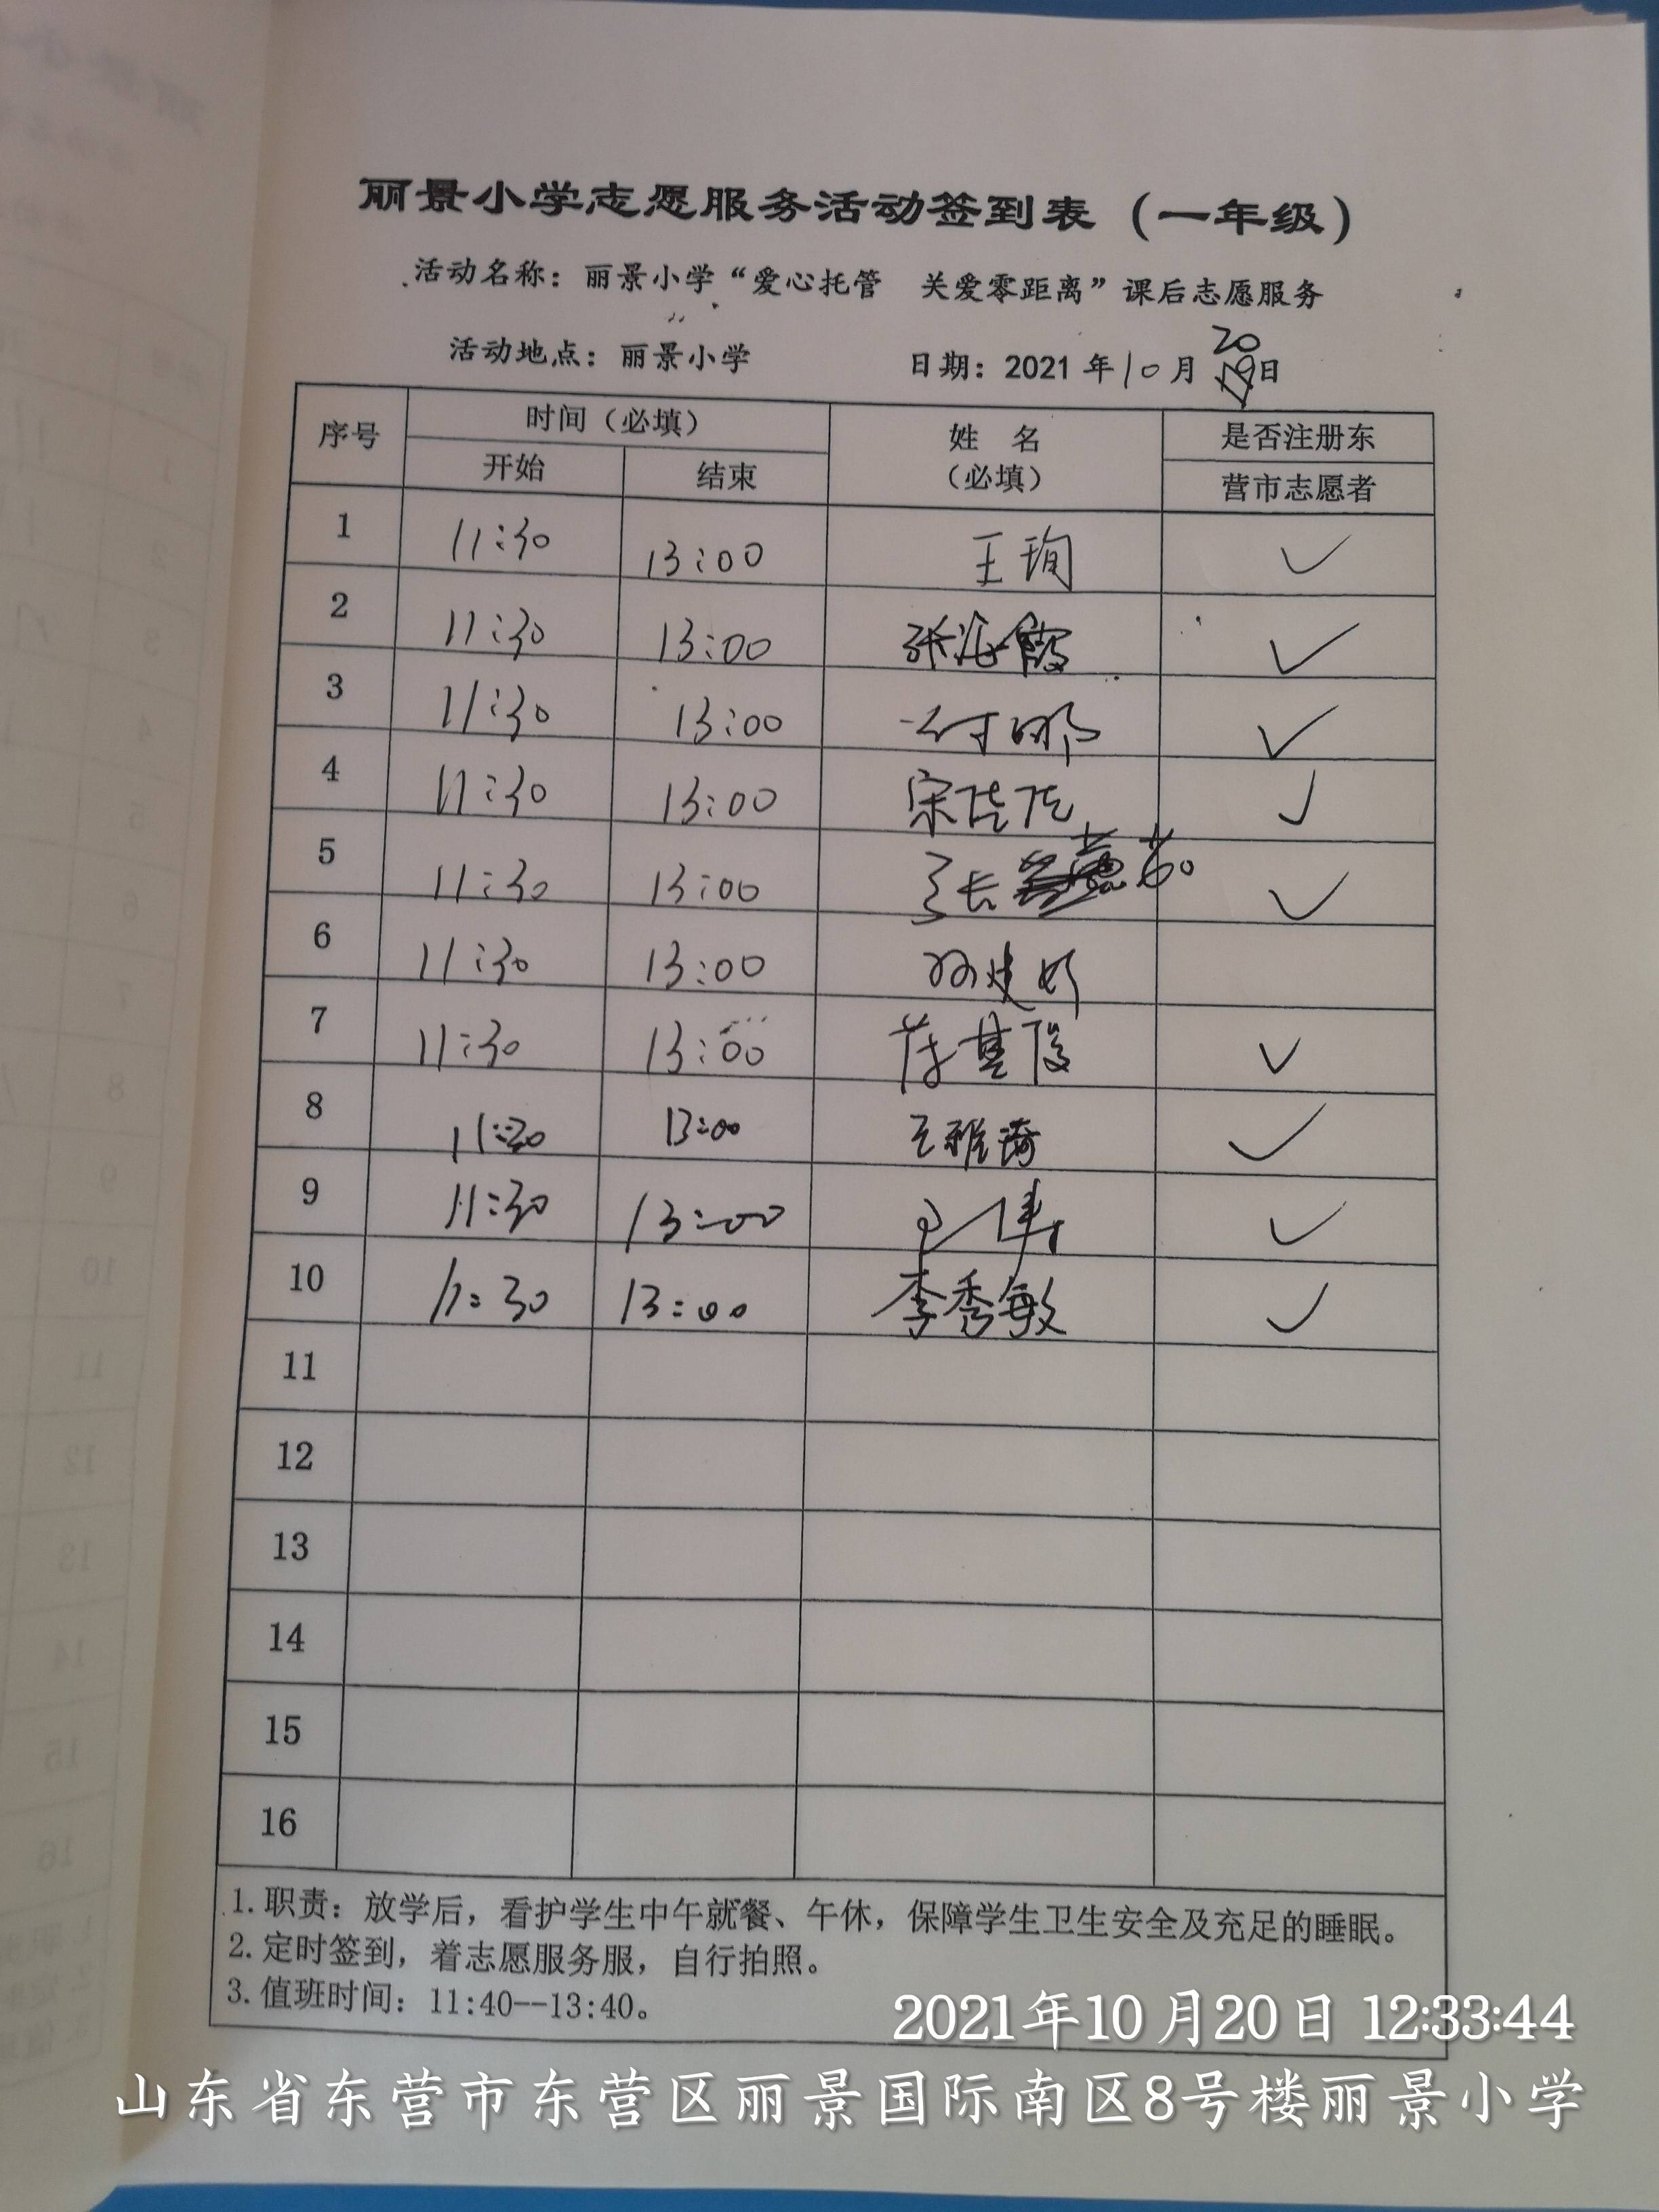 丽景小学志愿服务活动签到表（一年级）
活动名称：丽景小学“爱心托管 关爱零距离”课后志愿服务
活动地点：丽景小学 日期：2021年10月20日
序号 时间（必填） 姓 名 是否注册东
开始 结束 （必填） 营市志愿者
1 11:30 13:00 王珣 ✓
2 11:30 13:00 张海霞 ✓
3 11:30 13:00 ✓
4 11:30 13:00 宋佳佳 ✓
5 11:30 13:00 张 ✓
6 11:30 13:00
7 11:30 13:00 ✓
8 11:30 13:00 王雅琦 ✓
9 11:30 13:00 ✓
10 11:30 13:00 李秀敏 ✓
11
12
13
14
15
16
1.职责：放学后，看护学生中午就餐、午休，保障学生卫生安全及充足的睡眠。
2.定时签到，着志愿服务服，自行拍照。
3.值班时间：11:40--13:40。
2021年10月20日 12:33:44
山东省东营市东营区丽景国际南区8号楼丽景小学